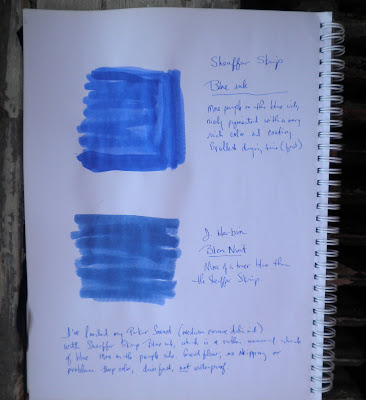 Sheaffer Skrip
Blue ink
More purple in this blue ink,
nicely pigmented with a very
rich color and
Excellent drying time (fast)
J. Herbin
Bleu Nuit
More of a truer blue than
the Sheaffer Skrip
I've loaded my Parker Sonnet (medium
with Sheaffer Skrip Blue ink, which is a rather shade
of blue on the purple side. Good flow, no skipping or
problems. Deep color, dries fast, not waterproof